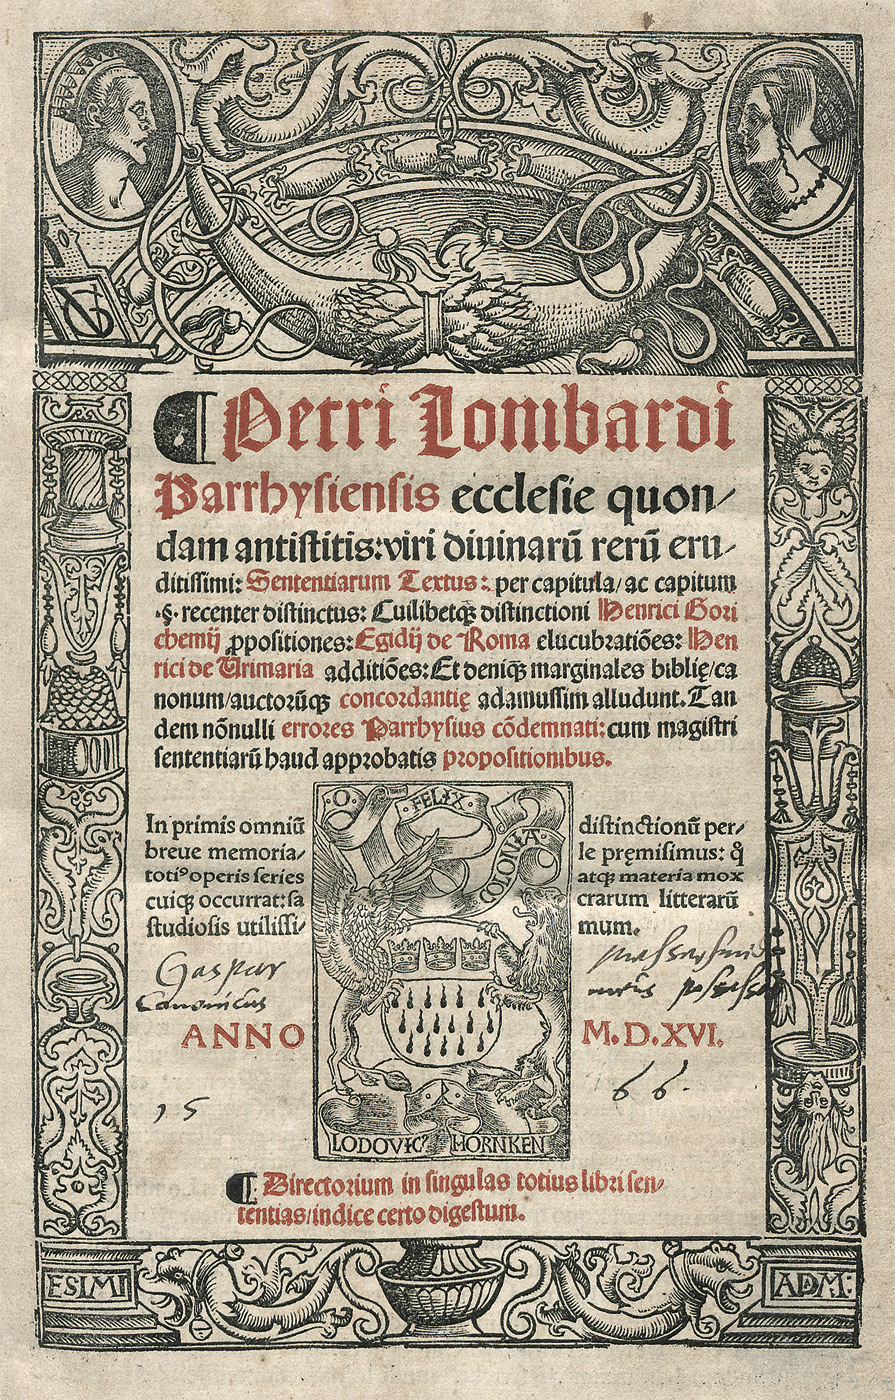 ¶ Petri Lombardi
Parrhysiensis ecclesie quon⸗
dam antistitis: viri diuinarū rerū eru⸗
ditissimi: Sententiarum Textus: per capitula/ ac capitum
·§· recenter distinctus: Cuilibetqꝫ distinctioni Henrici Gori
chemij ꝓpositiones: Egidij de Roma elucubratiōes: Hen
rici de Urimaria additiōes: Et deniqꝫ marginales biblię/ca
nonum/auctorūqꝫ concordantię adamussim alludunt. Tan
dem nōnulli errores Parrhysius cōdemnati: cum magistri
sententiarū haud approbatis propositionibus.
In primis omniū distinctionū per⸗
breue memoria⸗ le pręmisimus: ꝙ̊
totiꝰ operis series atqꝫ materia mox
cuiqꝫ occurrat: sa crarum litterarū
studiosis utilissi⸗ mum.
FELIX
COLONIA
Gaspar
Canonicus
ANNO M.D.XVI.
15 66.
LODOVICꝰ HORNKEN
¶ Directorium in singulas totius libri sen⸗
tentias/indice certo digestum.
ESIMI ADM: